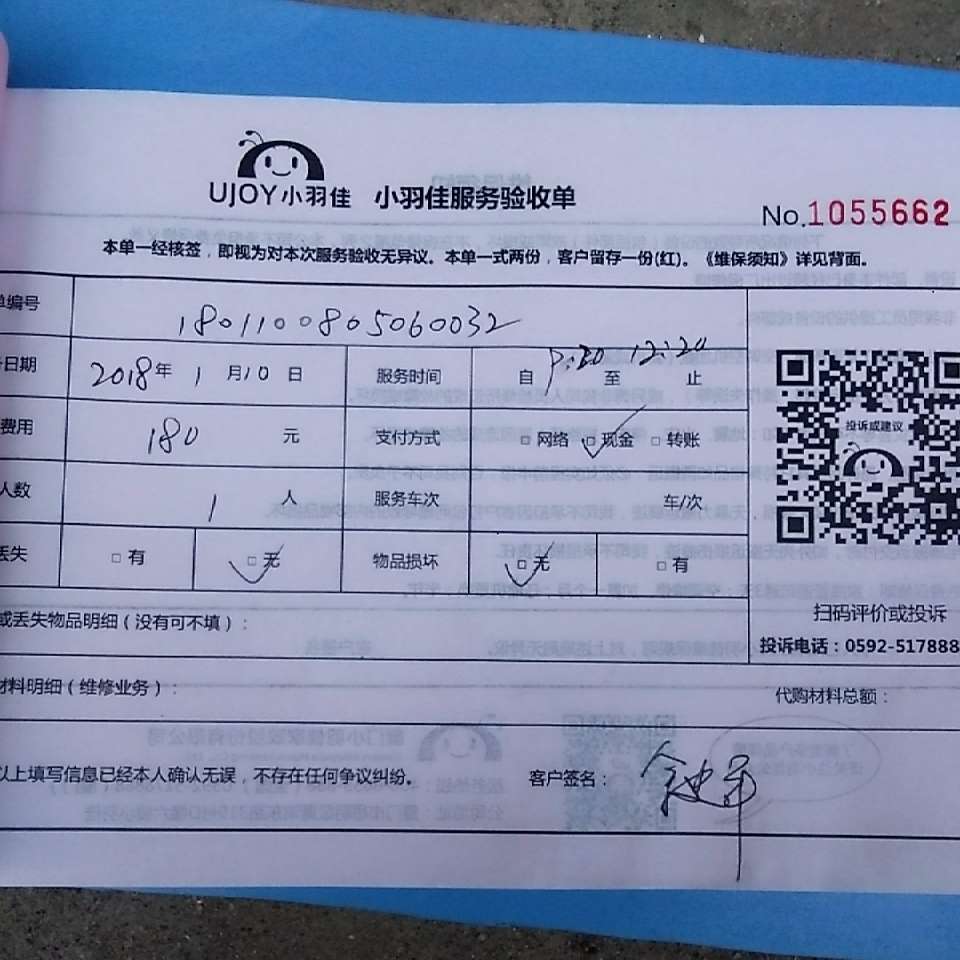 UJOY小羽佳 小羽佳服务验收单
No.1055662
本单一经核签，即视为对本次服务验收无异议。本单一式两份，客户留存一份(红)。《维保须知》详见背面。
单编号 1801100805060032
日期 2018年 1月10日 服务时间 自 至 12:20 止
费用 180 元 支付方式 □网络 □现金 □转账
人数 1 人 服务车次 车/次
丢失 □有 □无 物品损坏 □无 □有
投诉或建议
扫码评价或投诉
投诉电话：0592-517888
或丢失物品明细（没有可不填）：
材料明细（维修业务）： 代购材料总额：
以上填写信息已经本人确认无误，不存在任何争议纠纷。 客户签名：